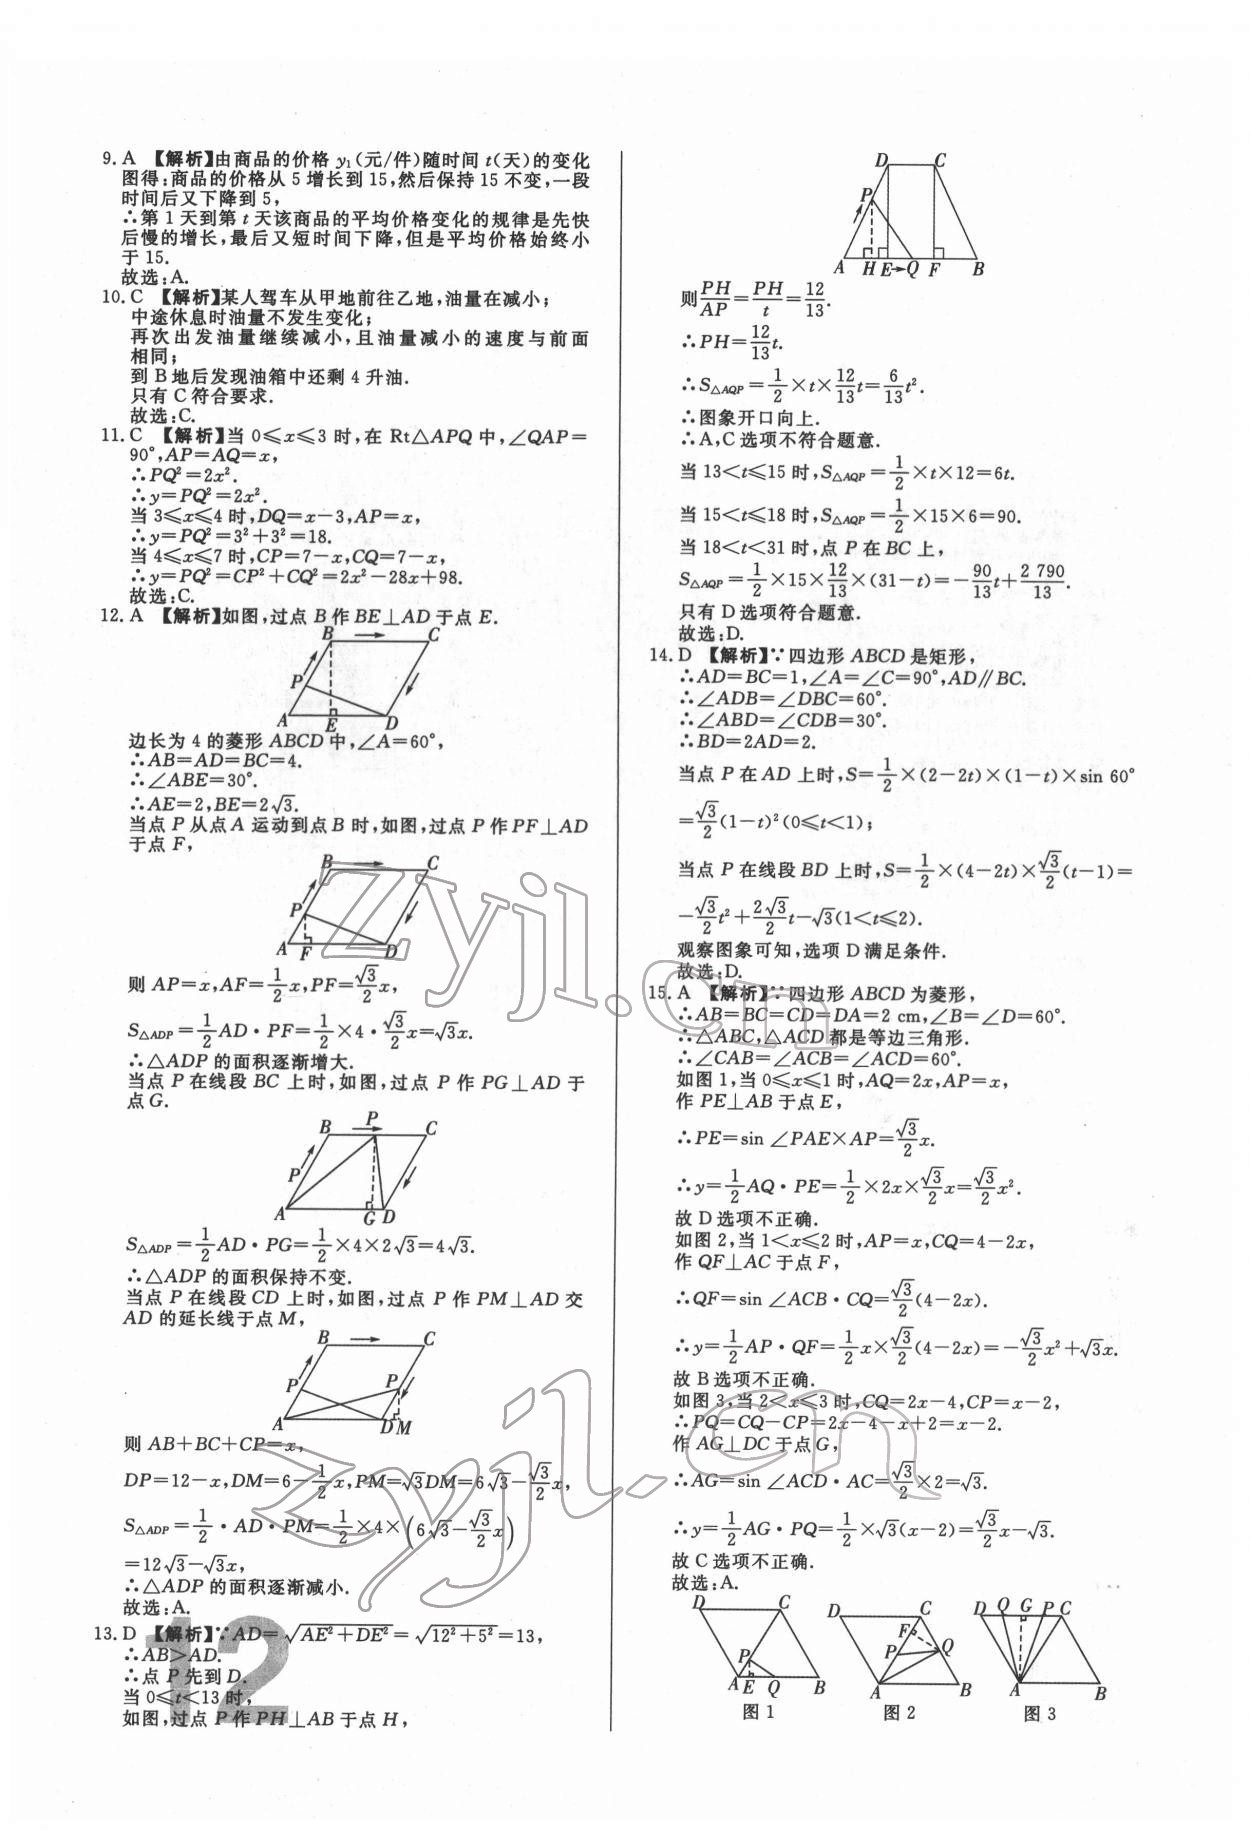 9. A 【解析】由商品的价格 y₁(元/件)随时间 t(天)的变化
图得:商品的价格从 5 增长到 15,然后保持 15 不变,一段
时间后又下降到 5,
∴第 1 天到第 t 天该商品的平均价格变化的规律是先快
后慢的增长,最后又短时间下降,但是平均价格始终小
于 15.
故选:A.
10. C 【解析】某人驾车从甲地前往乙地,油量在减小;
中途休息时油量不发生变化;
再次出发油量继续减小,且油量减小的速度与前面
相同;
到 B 地后发现油箱中还剩 4 升油.
只有 C 符合要求.
故选:C.
11. C 【解析】当 0≤x≤3 时,在 Rt△APQ 中,∠QAP=
90°,AP=AQ=x,
∴PQ²=2x².
∴y=PQ²=2x².
当 3≤x≤4 时,DQ=x-3,AP=x,
∴y=PQ²=3²+3²=18.
当 4≤x≤7 时,CP=7-x,CQ=7-x,
∴y=PQ²=CP²+CQ²=2x²-28x+98.
故选:C.
12. A 【解析】如图,过点 B 作 BE⊥AD 于点 E.
B C
P
A E D
边长为 4 的菱形 ABCD 中,∠A=60°,
∴AB=AD=BC=4.
∴∠ABE=30°.
∴AE=2,BE=2√3.
当点 P 从点 A 运动到点 B 时,如图,过点 P 作 PF⊥AD
于点 F,
B C
P
A F D
则 AP=x,AF=1/2x,PF=√3/2x,
S△ADP=1/2AD·PF=1/2×4·√3/2x=√3x.
∴△ADP 的面积逐渐增大.
当点 P 在线段 BC 上时,如图,过点 P 作 PG⊥AD 于
点 G.
B P C
P
A G D
S△ADP=1/2AD·PG=1/2×4×2√3=4√3.
∴△ADP 的面积保持不变.
当点 P 在线段 CD 上时,如图,过点 P 作 PM⊥AD 交
AD 的延长线于点 M,
B C
P P
A D M
则 AB+BC+CP=x,
DP=12-x,DM=6-1/2x,PM=√3DM=6√3-√3/2x,
S△ADP=1/2·AD·PM=1/2×4×(6√3-√3/2x)
=12√3-√3x,
∴△ADP 的面积逐渐减小.
故选:A.
13. D 【解析】∵AD=√(AE²+DE²)=√(12²+5²)=13,
∴AB>AD.
∴点 P 先到 D.
当 0≤t<13 时,
如图,过点 P 作 PH⊥AB 于点 H,
12
D C
P
A H E→Q F B
则PH/AP=PH/t=12/13.
∴PH=12/13t.
∴S△AQP=1/2×t×12/13t=6/13t².
∴图象开口向上.
∴A,C 选项不符合题意.
当 13<t≤15 时,S△AQP=1/2×t×12=6t.
当 15<t≤18 时,S△AQP=1/2×15×6=90.
当 18<t<31 时,点 P 在 BC 上,
S△AQP=1/2×15×12/13×(31-t)=-90/13t+2 790/13.
只有 D 选项符合题意.
故选:D.
14. D 【解析】∵四边形 ABCD 是矩形,
∴AD=BC=1,∠A=∠C=90°,AD∥BC.
∴∠ADB=∠DBC=60°.
∴∠ABD=∠CDB=30°.
∴BD=2AD=2.
当点 P 在 AD 上时,S=1/2×(2-2t)×(1-t)×sin 60°
=√3/2(1-t)²(0≤t<1);
当点 P 在线段 BD 上时,S=1/2×(4-2t)×√3/2(t-1)=
-√3/2t²+2√3/2t-√3(1<t≤2).
观察图象可知,选项 D 满足条件.
故选:D.
15. A 【解析】∵四边形 ABCD 为菱形,
∴AB=BC=CD=DA=2 cm,∠B=∠D=60°.
∴△ABC,△ACD 都是等边三角形.
∴∠CAB=∠ACB=∠ACD=60°.
如图 1,当 0≤x≤1 时,AQ=2x,AP=x,
作 PE⊥AB 于点 E,
∴PE=sin ∠PAE×AP=√3/2x.
∴y=1/2AQ·PE=1/2×2x×√3/2x=√3/2x².
故 D 选项不正确.
如图 2,当 1<x≤2 时,AP=x,CQ=4-2x,
作 QF⊥AC 于点 F,
∴QF=sin ∠ACB·CQ=√3/2(4-2x).
∴y=1/2AP·QF=1/2x×√3/2(4-2x)=-√3/2x²+√3x.
故 B 选项不正确.
如图 3,当 2<x≤3 时,CQ=2x-4,CP=x-2,
∴PQ=CQ-CP=2x-4-x+2=x-2.
作 AG⊥DC 于点 G,
∴AG=sin ∠ACD·AC=√3/2×2=√3.
∴y=1/2AG·PQ=1/2×√3(x-2)=√3/2x-√3.
故 C 选项不正确.
故选:A.
D C
P
A E Q B
图 1
D C
F
P Q
A B
图 2
D Q G P C
A B
图 3
zyjl.cn
zyjl.cn